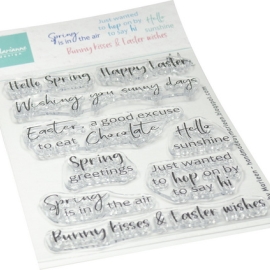 Marianne
Spring
is in the air
Just wanted
to hop on by
to say hi
Hello
sunshine
Bunny kisses & Easter wishes
Hello Spring Happy Easter
Wishing you sunny days
Easter, a good excuse
to eat Chocolate
Hello
sunshine
Spring
greetings
Just wanted
to hop on by
to say hi
Spring
is in the air
Bunny kisses & Easter wishes